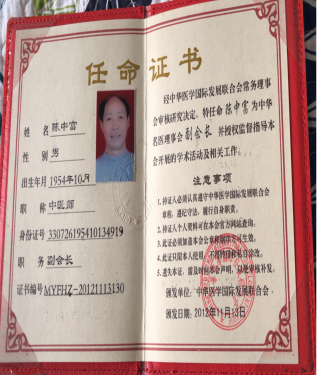 任命证书
姓名 陈中富
性别 男
出生年月 1954年10月
职称 中医师
身份证号 330726195410134919
职务 副会长
证书编号 MYFHZ-20121113130
经中华医学国际发展联合会常务理事
会审核研究决定，特任命 陈中富 为中华
名医理事会 副会长 并授权监督指导本
会开展的学术活动及相关工作。
注意事项
1.持证人必须认真遵守中华医学国际发展联合会
章程，遵纪守法，履行自身职责。
2.持证人个人资料可在本会官方网站查询。
3.此证必须加盖本会公章和钢印方可生效。
4.此证只限本人使用，不得转借和私自涂改。
5.遗失本证，需及时向本会声明，以便审核补发。
颁发单位：中华医学国际发展联合会
颁发日期：2012年11月13日